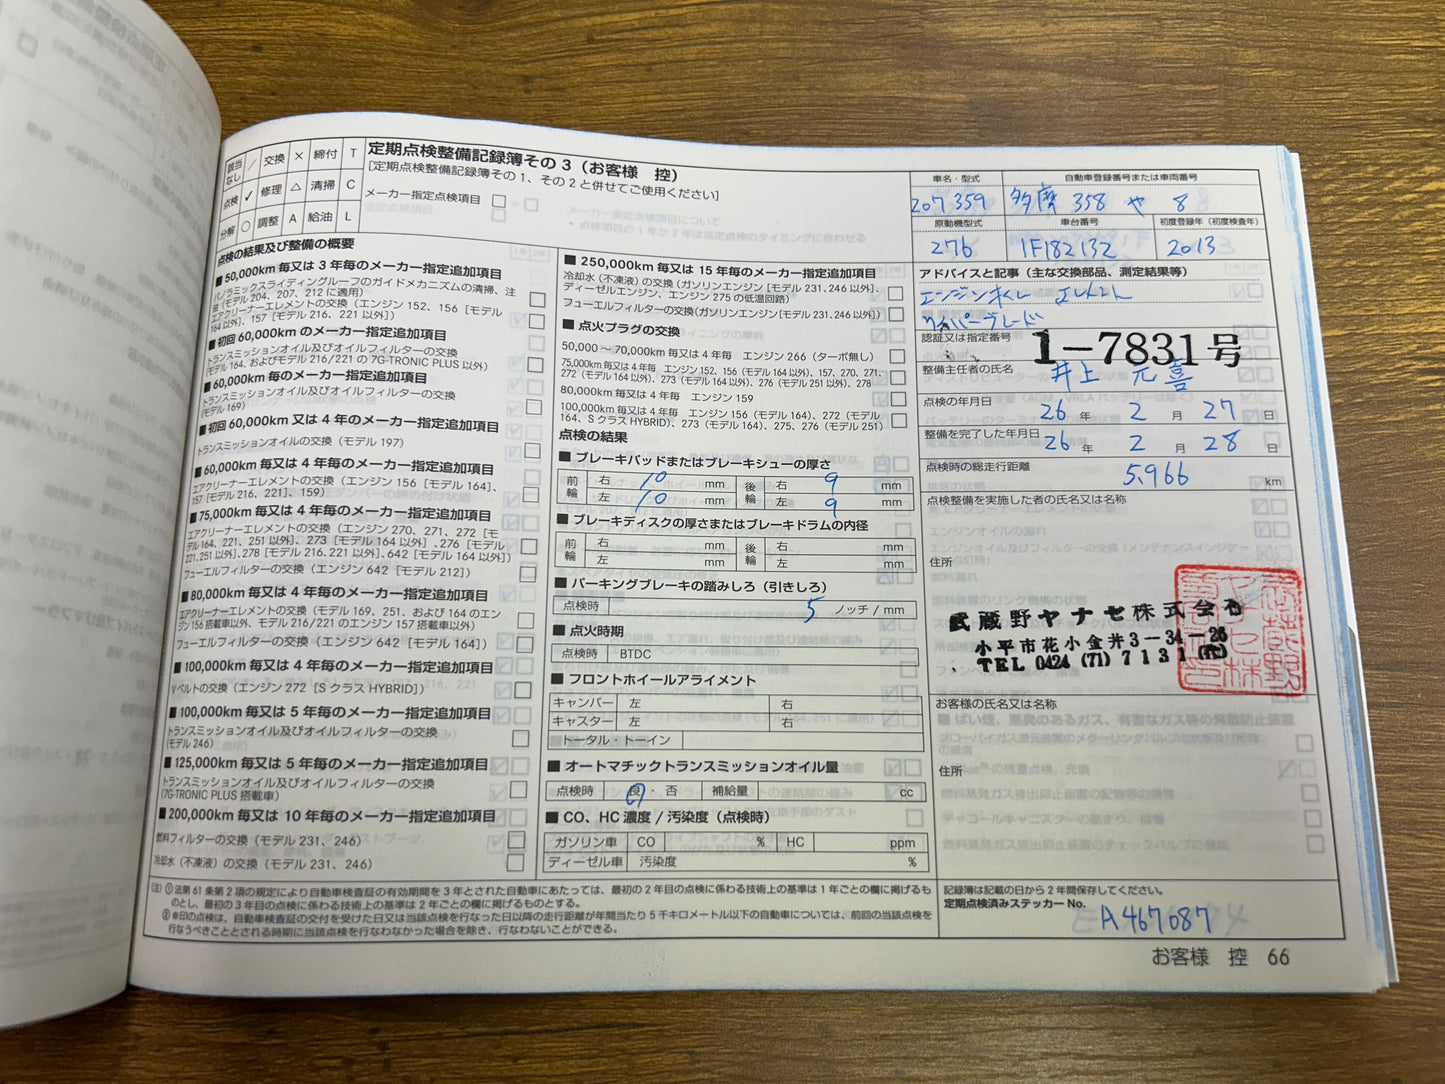 該当なし / 交換 × 締付 T
点検 ✓ 修理 △ 清掃 C
分解 ○ 調整 A 給油 L
定期点検整備記録簿その3（お客様 控）
[定期点検整備記録簿その1、その2と併せてご使用ください]
メーカー指定点検項目
法定点検項目
点検の結果及び整備の概要
■50,000km毎又は3年毎のメーカー指定追加項目
パノラミックスライディングルーフのガイドメカニズムの清掃、注
油（モデル204、207、212に適用）
エアクリーナーエレメントの交換（エンジン152、156［モデル
164以外］、157［モデル216、221以外］）
■初回60,000kmのメーカー指定追加項目
トランスミッションオイル及びオイルフィルターの交換
（モデル164、およびモデル216/221の7G-TRONIC PLUS以外）
■60,000km毎のメーカー指定追加項目
トランスミッションオイル及びオイルフィルターの交換
（モデル169）
■初回60,000km又は4年毎のメーカー指定追加項目
トランスミッションオイルの交換（モデル197）
■60,000km毎又は4年毎のメーカー指定追加項目
エアクリーナーエレメントの交換（エンジン156［モデル164］、
157［モデル216、221］、159）
■75,000km毎又は4年毎のメーカー指定追加項目
エアクリーナーエレメントの交換（エンジン270、271、272［モ
デル164、221、251以外］、273［モデル164以外］、276［モデル
221、251以外］、278［モデル216、221以外］、642［モデル164以外］）
フューエルフィルターの交換（エンジン642［モデル212］）
■80,000km毎又は4年毎のメーカー指定追加項目
エアクリーナーエレメントの交換（モデル169、251、および164のエン
ジン156搭載車以外、モデル216/221のエンジン157搭載車以外）
フューエルフィルターの交換（エンジン642［モデル164］）
■100,000km毎又は4年毎のメーカー指定追加項目
Vベルトの交換（エンジン272［SクラスHYBRID］）
■100,000km毎又は5年毎のメーカー指定追加項目
トランスミッションオイル及びオイルフィルターの交換
（モデル246）
■125,000km毎又は5年毎のメーカー指定追加項目
トランスミッションオイル及びオイルフィルターの交換
（7G-TRONIC PLUS搭載車）
■200,000km毎又は10年毎のメーカー指定追加項目
燃料フィルターの交換（モデル231、246）
冷却水（不凍液）の交換（モデル231、246）
■250,000km毎又は15年毎のメーカー指定追加項目
冷却水（不凍液）の交換（ガソリンエンジン［モデル231、246以外］、
ディーゼルエンジン、エンジン275の低温回路）
フューエルフィルターの交換（ガソリンエンジン［モデル231、246以外］）
■点火プラグの交換
50,000～70,000km毎又は4年毎 エンジン266（ターボ無し）
75,000km毎又は4年毎 エンジン152、156（モデル164以外）、157、270、271、
272（モデル164以外）、273（モデル164以外）、276（モデル251以外）、278
80,000km毎又は4年毎 エンジン159
100,000km毎又は4年毎 エンジン156（モデル164）、272（モデル
164、SクラスHYBRID）、273（モデル164）、275、276（モデル251）
点検の結果
■ブレーキパッドまたはブレーキシューの厚さ
前輪 右 10 mm 後輪 右 9 mm
左 10 mm 左 9 mm
■ブレーキディスクの厚さまたはブレーキドラムの内径
前輪 右 mm 後輪 右 mm
左 mm 左 mm
■パーキングブレーキの踏みしろ（引きしろ）
点検時 5 ノッチ/mm
■点火時期
点検時 BTDC
■フロントホイールアライメント
キャンバー 左 右
キャスター 左 右
トータル・トーイン
■オートマチックトランスミッションオイル量
点検時 良・否 補給量 cc
■CO、HC濃度/汚染度（点検時）
ガソリン車 CO % HC ppm
ディーゼル車 汚染度 %
車名・型式 自動車登録番号または車両番号
207359 多摩 358 や 8
原動機型式 車台番号 初度登録年（初度検査年）
276 1F182132 2013
アドバイスと記事（主な交換部品、測定結果等）
エンジンオイル エレメント
ワイパーブレード
認証又は指定番号 1-7831号
整備主任者の氏名 井上 元喜
点検の年月日 26年 2月 27日
整備を完了した年月日 26年 2月 28日
点検時の総走行距離 5,966 km
点検整備を実施した者の氏名又は名称
住所
武蔵野ヤナセ株式会社
小平市花小金井3-34-26
TEL 0424（71）7131（代）
お客様の氏名又は名称
住所
（注）①法第61条第2項の規定により自動車検査証の有効期間を3年とされた自動車にあたっては、最初の2年目の点検に係わる技術上の基準は1年ごとの欄に掲げるも
のとし、最初の3年目の点検に係わる技術上の基準は2年ごとの欄に掲げるものとする。
②※印の点検は、自動車検査証の交付を受けた日又は当該点検を行なった日以降の走行距離が年間当たり5千キロメートル以下の自動車については、前回の当該点検を
行なうべきこととされる時期に当該点検を行なわなかった場合を除き、行なわないことができる。
記録簿は記載の日から2年間保存してください。
定期点検済みステッカーNo.
A467087
お客様 控 66